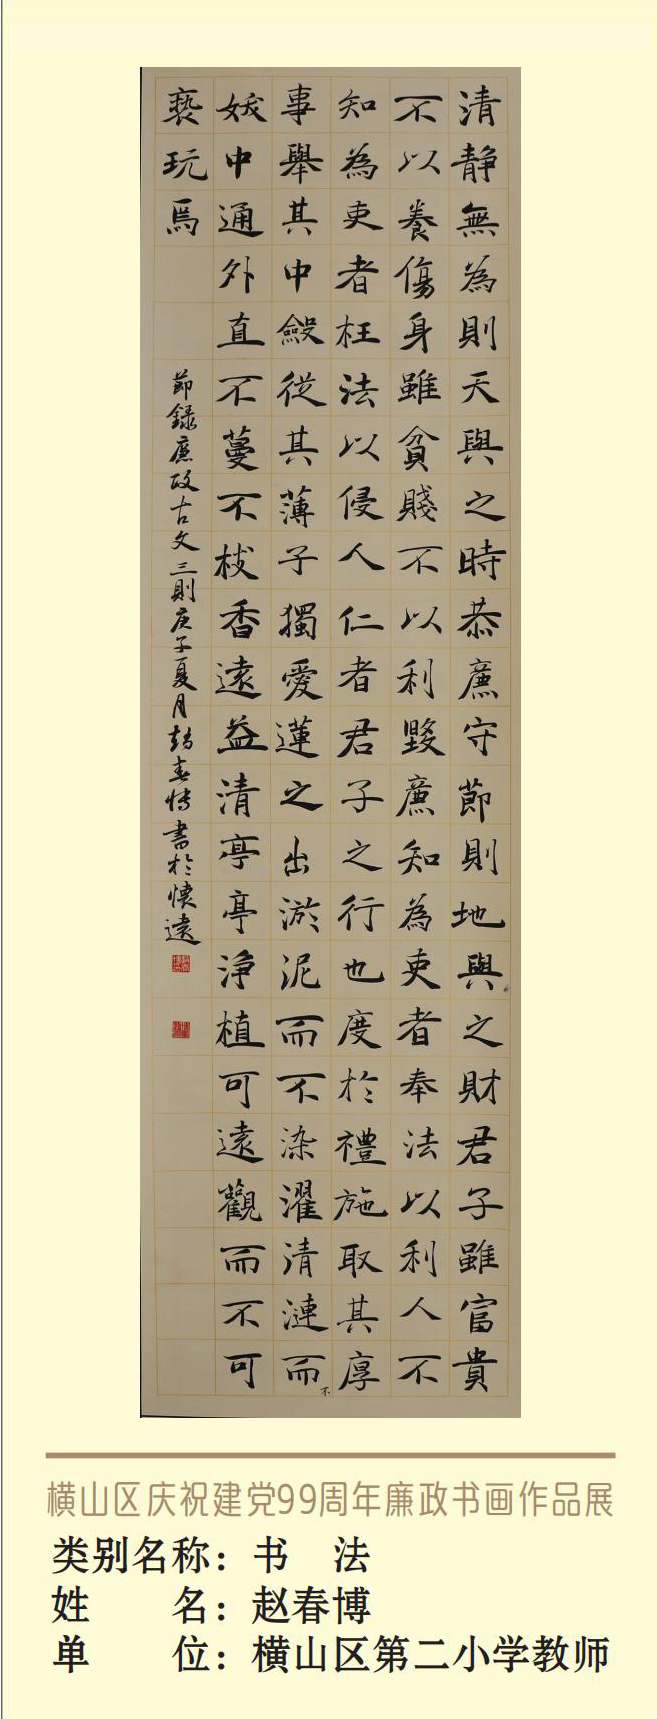 清静無為則天與之時恭廉守節則地與之財君子雖富貴
不以養傷身雖貧賤不以利毀廉知為吏者奉法以利人不
知為吏者枉法以侵人仁者君子之行也度於禮施取其厚
事舉其中斂從其薄子獨愛蓮之出淤泥而不染濯清漣而
不
妖中通外直不蔓不枝香遠益清亭亭浄植可遠觀而不可
褻玩焉
節録廉政古文三則庚子夏月趙春博書於懷遠
横山区庆祝建党99周年廉政书画作品展
类别名称：书 法
姓 名：赵春博
单 位：横山区第二小学教师